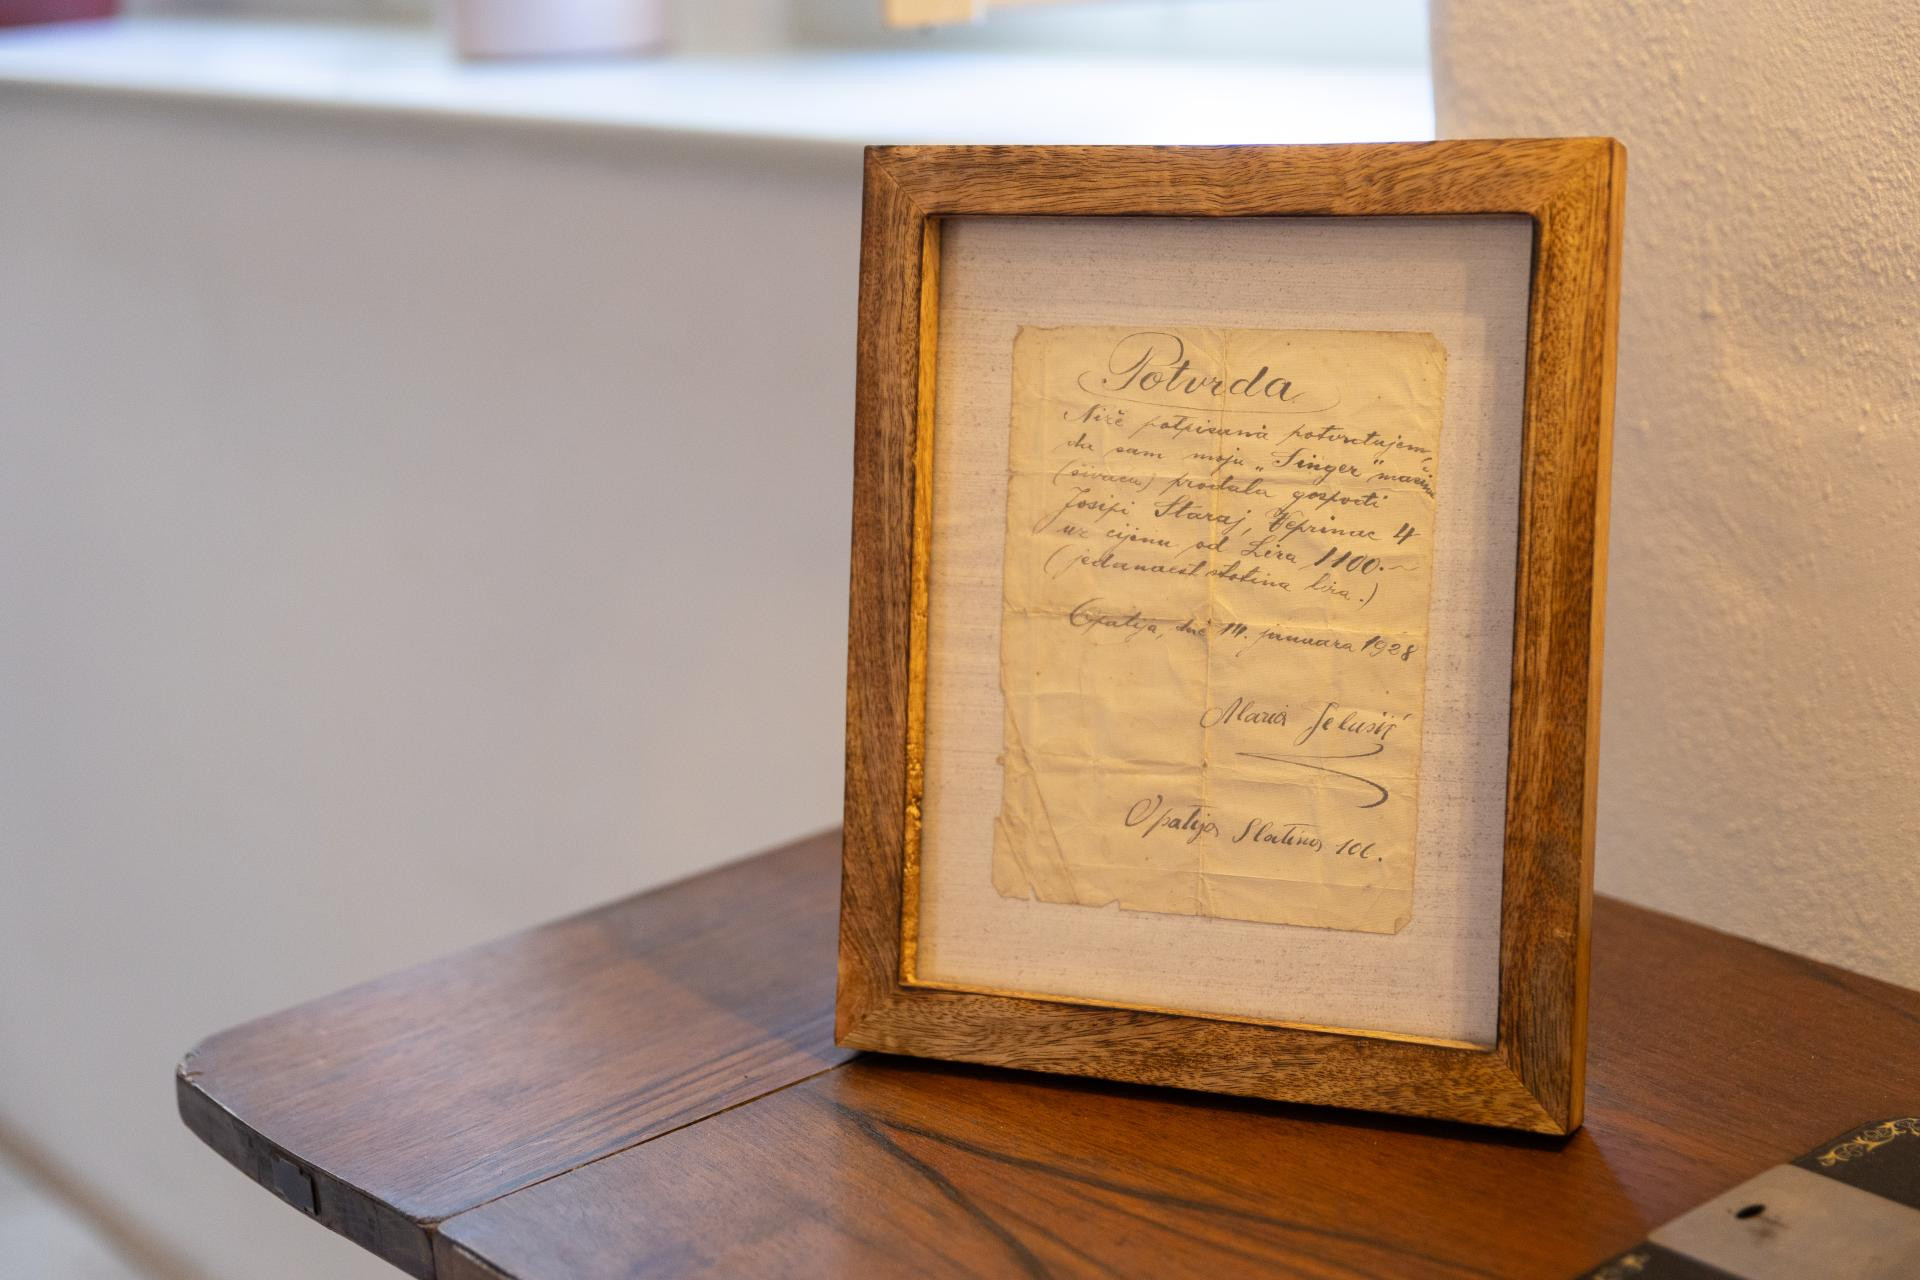 Potvrda
Niže potpisana potvrdujem,
da sam moju „Singer" mašinu
(šivaću) prodala gospođi
Josipi Staraj, Veprinac 4
uz cijenu od Lira 1100.-
(jedanaest stotina lira.)
Opatija, dne 14. januara 1928
Maria Jelušić
Opatija Slatina 106.